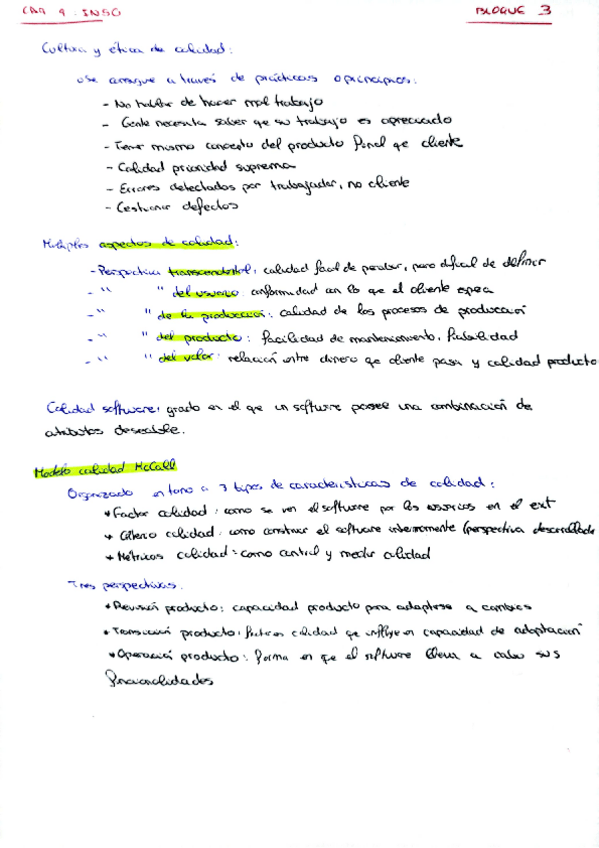 CAP 9. INSO
BLOQUE 3
Cultura y ética de calidad:
Se arraigue a través de prácticas o principios:
- No hablar de hacer mal trabajo
- Gente necesita saber que su trabajo es apreciado
- Tener mismo concepto del producto final que cliente
- Calidad prioridad suprema
- Errores detectados por trabajador, no cliente
- Gestionar defectos
Múltiples aspectos de calidad:
- Perspectiva transcendental: calidad fácil de percibir, pero difícil de definir
- " " del usuario: conformidad con lo que el cliente espera
- " " de la producción: calidad de los procesos de producción
- " " del producto: facilidad de mantenimiento, fiabilidad
- " " del valor: relación entre dinero que cliente paga y calidad producto
Calidad software: grado en el que un software posee una combinación de
atributos deseable.
Modelo calidad McCall
Organizado en torno a 3 tipos de características de calidad:
* Factor calidad: como se ven el software por los usuarios en el ext
* Criterio calidad: como construir el software internamente (perspectiva desarrollador
* Métricas calidad: como control y medir calidad
Tres perspectivas:
* Revisión producto: capacidad producto para adaptarse a cambios
* Transición producto: factores calidad que influye en capacidad de adaptación
* Operación producto: forma en que el software lleva a cabo sus
funcionalidades